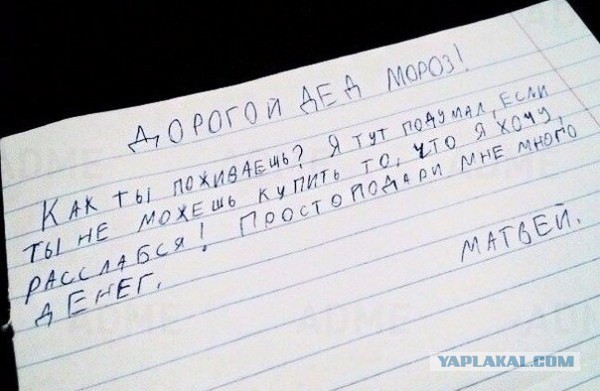 ДОРОГОЙ ДЕД МОРОЗ!
КАК ТЫ ПОЖИВАЕШЬ? Я ТУТ ПОДУМАЛ, ЕСЛИ
ТЫ НЕ МОЖЕШЬ КУПИТЬ ТО, ЧТО Я ХОЧУ,
РАССЛАБСЯ! ПРОСТО ПОДАРИ МНЕ МНОГО
ДЕНЕГ.
МАТВЕЙ.
ADME
YAPLAKAL.COM